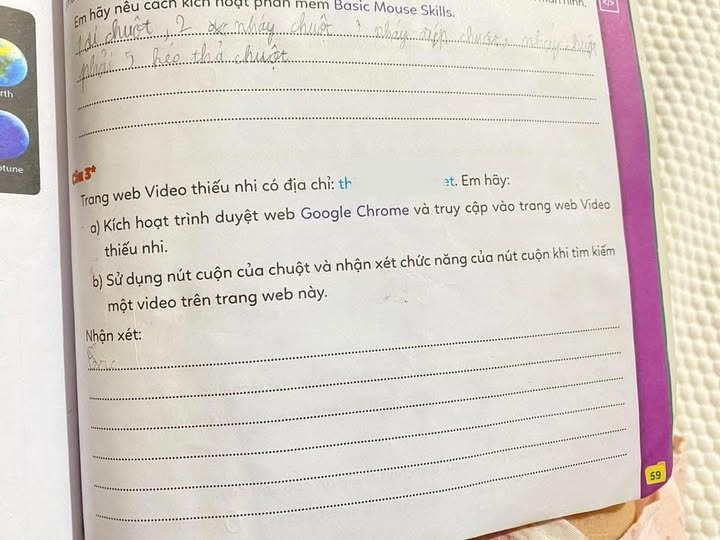 Em hãy nêu cách kích hoạt phần mềm Basic Mouse Skills.
chuột, 2 nháy chuột 3 nháy đúp chuột nháy chuột
phải 5 kéo thả chuột
rth
ptune
Câu 3*
Trang web Video thiếu nhi có địa chỉ: th et. Em hãy:
a) Kích hoạt trình duyệt web Google Chrome và truy cập vào trang web Video
thiếu nhi.
b) Sử dụng nút cuộn của chuột và nhận xét chức năng của nút cuộn khi tìm kiếm
một video trên trang web này.
Nhận xét:
59